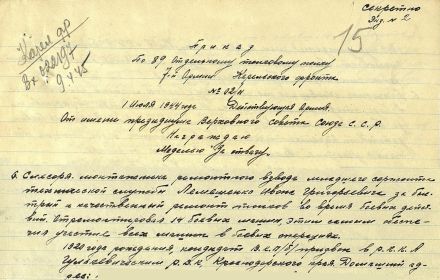 Секретно
Экз. № 2
15
9.4.45
Приказ
По 89 Отдельному танковому полку
7-й Армии Карельского фронта
№ 02/н
1 Июля 1944 года Действующая Армия.
От имени президиума Верховного совета Союза С.С.Р.
Награждаю
Медалью За отвагу.
6. Слесаря-монтажника ремонтного взвода младшего сержанта
технической службы Лемешенко Ивана Григорьевича за быс-
трый и качественный ремонт танков во время боевых дейст-
вий. Отремонтировал 14 боевых машин, этим самым обеспе-
чил участие всех машин в боевых операциях.
1920 года рождения, кандидат В.К.П/б/ призван в Р.К.К.А
Гулькевическим Р.В.К, Краснодарского края. Домашний ад-
рес: